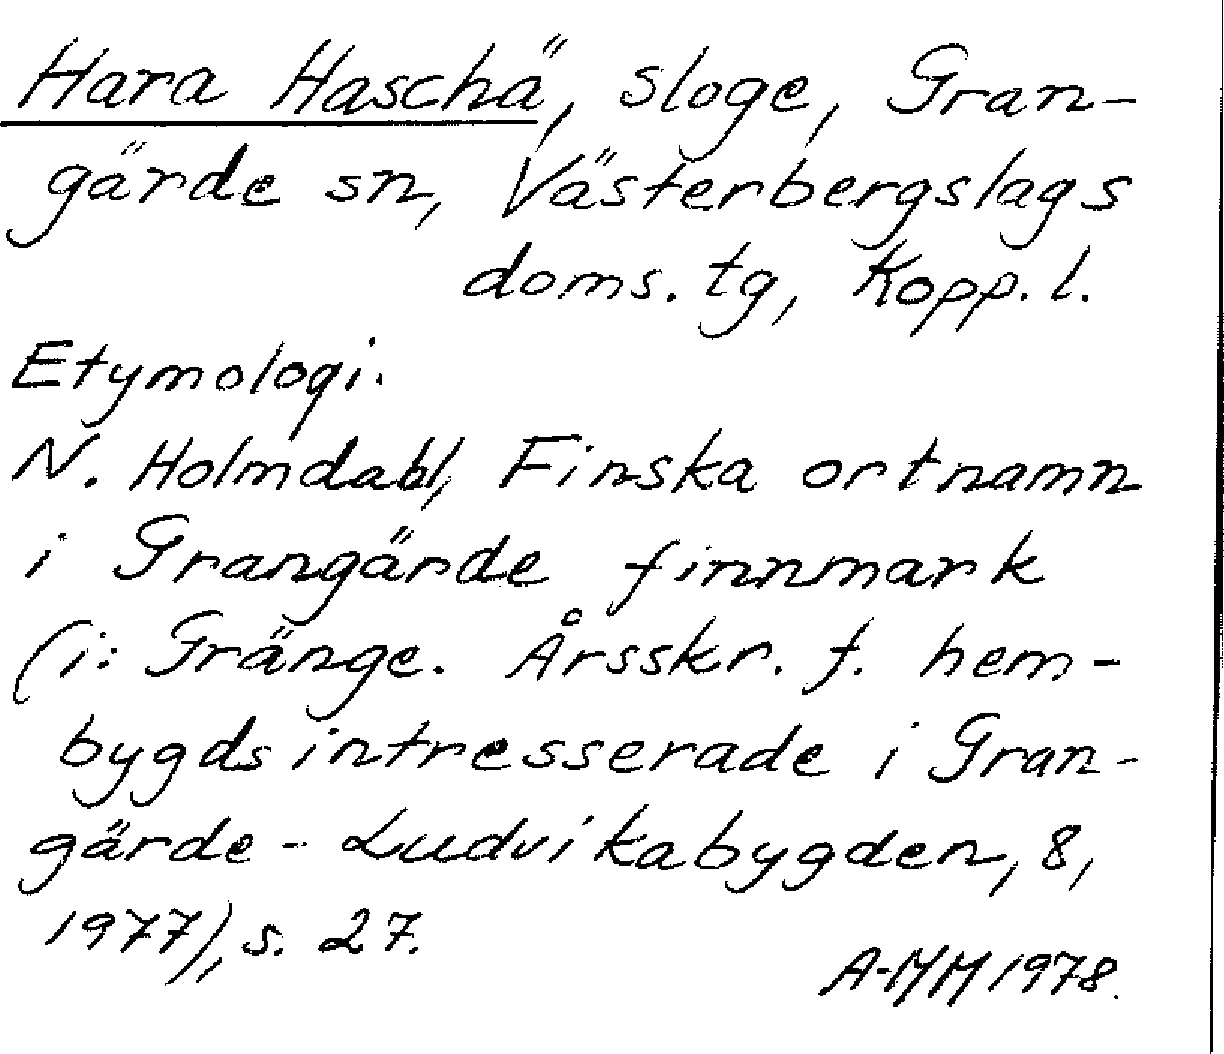 Hara Haschä, sloge, Gran-
gärde sn, Västerbergslags
doms. tg, Kopp. l.
Etymologi.
N. Holmdahl, Finska ortnamn
i Grangärde finnmark
(i: Gränge. Årsskr. f. hem-
bygdsintresserade i Gran-
gärde - Ludvikabygden, 8,
1977), s. 27.
A-MM 1978.